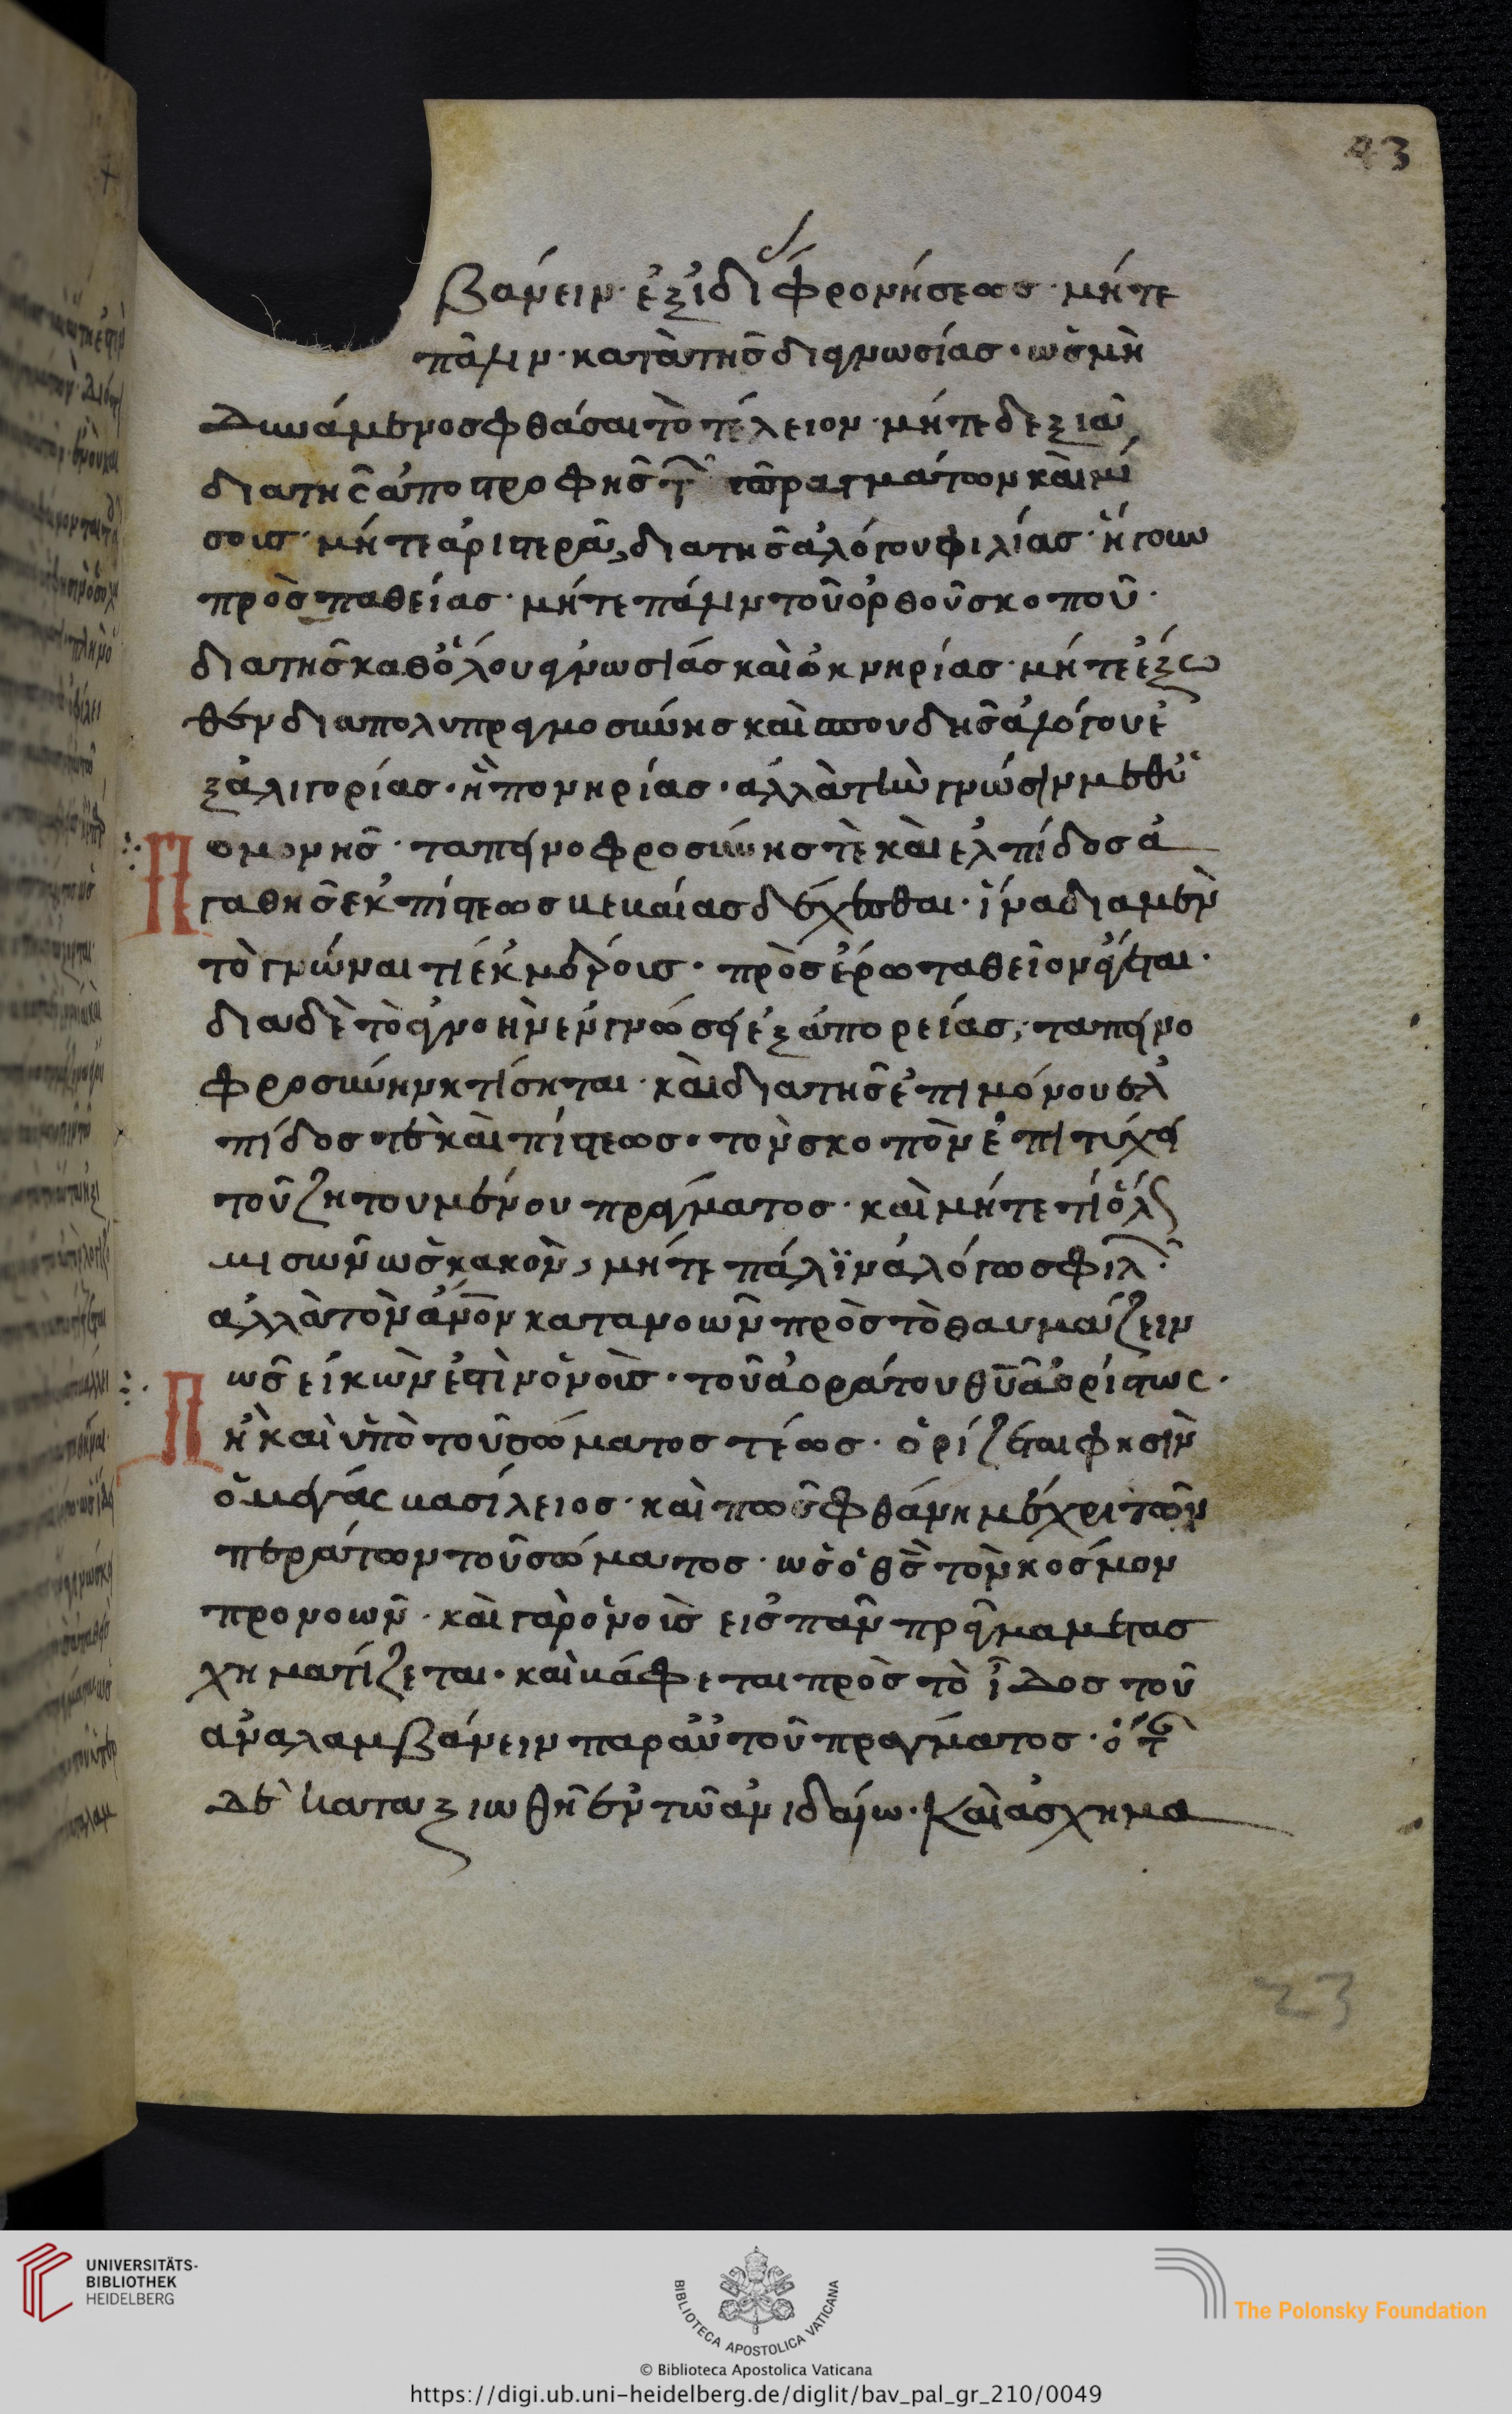 43
βάνειν· ἐξ ἰδι φρονήσεως· μήτε
πάλιν· κατὰ τῆς διγνωσίας· ὡς μὴ
δυνάμενος φθάσαι τὸ τέλειον· μήτε δεξιὰ
διὰ τῆς ἀποστροφῆς τ πραγμάτων καὶ μί
σους· μήτε ἀριστερὰ, διὰ τῆς ἀλόγου φιλίας· ἤγουν
προσπαθείας· μήτε πάλιν τοῦ ὀρθοῦ σκοποῦ·
διὰ τῆς καθόλου γνωσίας καὶ ὀκνηρίας· μήτε ἔξω
θεν διὰ πολυπραγμοσύνης καὶ σπουδῆς ἀλόγου ἐ
ξ ἀλιγορίας· ἢ πονηρίας· ἀλλὰ τὴν γνῶσιν μεθ' ὑ
Π ομονῆς· ταπεινοφροσύνης τὲ καὶ ἐλπίδος ἀ
γαθῆς ἐκ πίστεως βεβαίας δέχεσθαι· ἵνα διὰ μὲν
τὸ γνῶναι τί ἐκ μέρους· πρὸς ἔρωτα θεῖον ἄγεται·
διὰ δὲ τὸ ἀγνοὴν ἐν γνώσει ἐξ ἀπορείας, ταπεινο
φροσύνην κτίσηται· καὶ διὰ τῆς ἐπιμόνου ἐλ
πίδος τὲ καὶ πίστεως· τὸν σκοπὸν ἐπιτύχει
τοῦ ζητουμένου πράγματος· καὶ μήτε τί ὅλ
μισῶν ὡς κακὸν, μήτε πάλιν ἀλόγως φιλ
ἀλλὰ τὸν ἄνον κατανοῶν πρὸς τὸ θαυμάζειν
ὡς εἰκὼν ἐστὶν ὁ νοῦς· τοῦ ἀοράτου θυ ἀορίστως·
Π ἢ καὶ ὑπὸ τοῦ σώματος τέως· ὁρίζεται φησὶν
ὁ μέγας βασίλειος· καὶ πῶς φθάνη μέχρι τῶν
περάτων τοῦ σώματος· ὡς ὁ θς τὸν κόσμον
προνοῶν· καὶ γὰρ ὁ νοῦς εἰς πᾶν πρᾶγμα μετας
χηματίζεται· καὶ βάφεται πρὸς τὸ ἶδος τοῦ
ἀναλαμβάνειν παρ αὐτοῦ πράγματος· ὅτ
δὲ καταξιωθῆ ἐν τῶ ἀνιδαίω· καὶ ἀσχημα
23
UNIVERSITÄTS-
BIBLIOTHEK
HEIDELBERG
BIBLIOTECA APOSTOLICA VATICANA
The Polonsky Foundation
© Biblioteca Apostolica Vaticana
https://digi.ub.uni-heidelberg.de/diglit/bav_pal_gr_210/0049